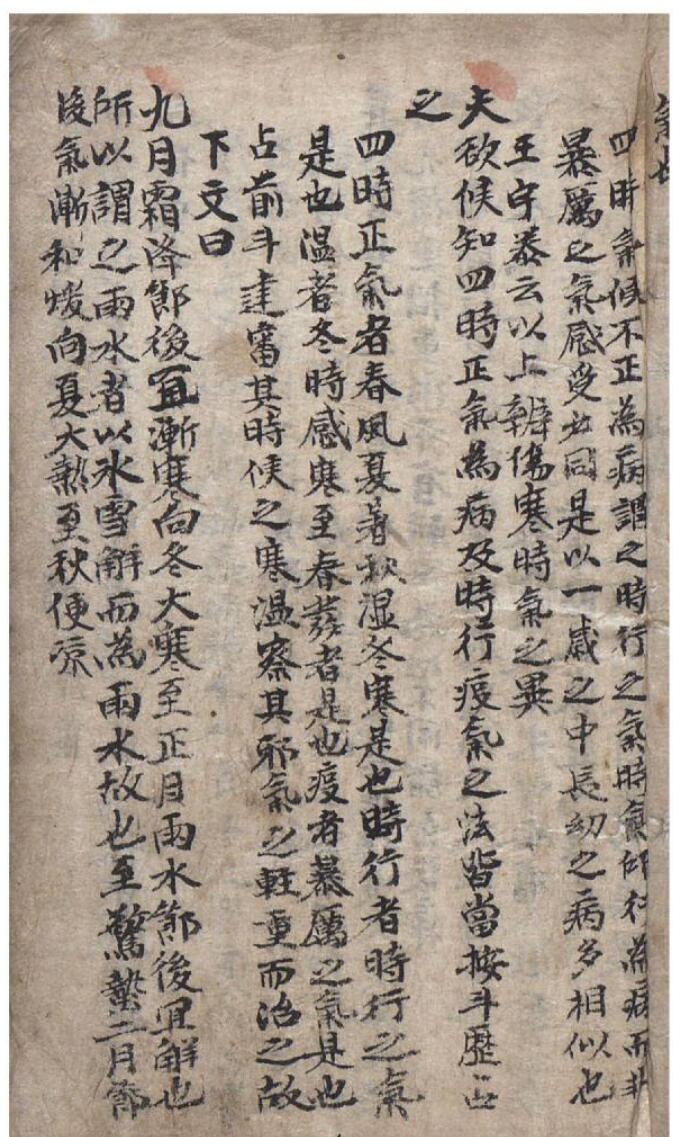 氣也
四時氣候不正為病謂之時行之氣時氣所行為病而非
暴厲之氣感受必同是以一歲之中長幼之病多相似也
王宇泰云以上辨傷寒時氣之異
夫欲候知四時正氣為病及時行疫氣之法皆當按斗歷占
之
四時正氣者春風夏暑秋湿冬寒是也時行者時行之氣
是也温者冬時感寒至春發者是也疫者暴厲之氣是也
占前斗建審其時候之寒温察其邪氣之軽重而治之故
下文曰
九月霜降節後宜漸寒向冬大寒至正月雨水節後宜解也
所以謂之雨水者以氷雪解而為雨水故也至驚蟄二月節
後氣漸和煖向夏大熱至秋便凉